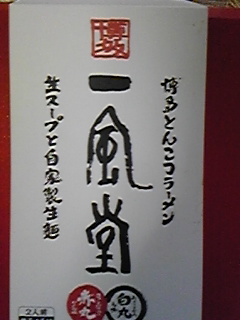 博多
一風堂
博多とんこつラーメン
生スープと自家製生麺
赤丸
白丸
2人前